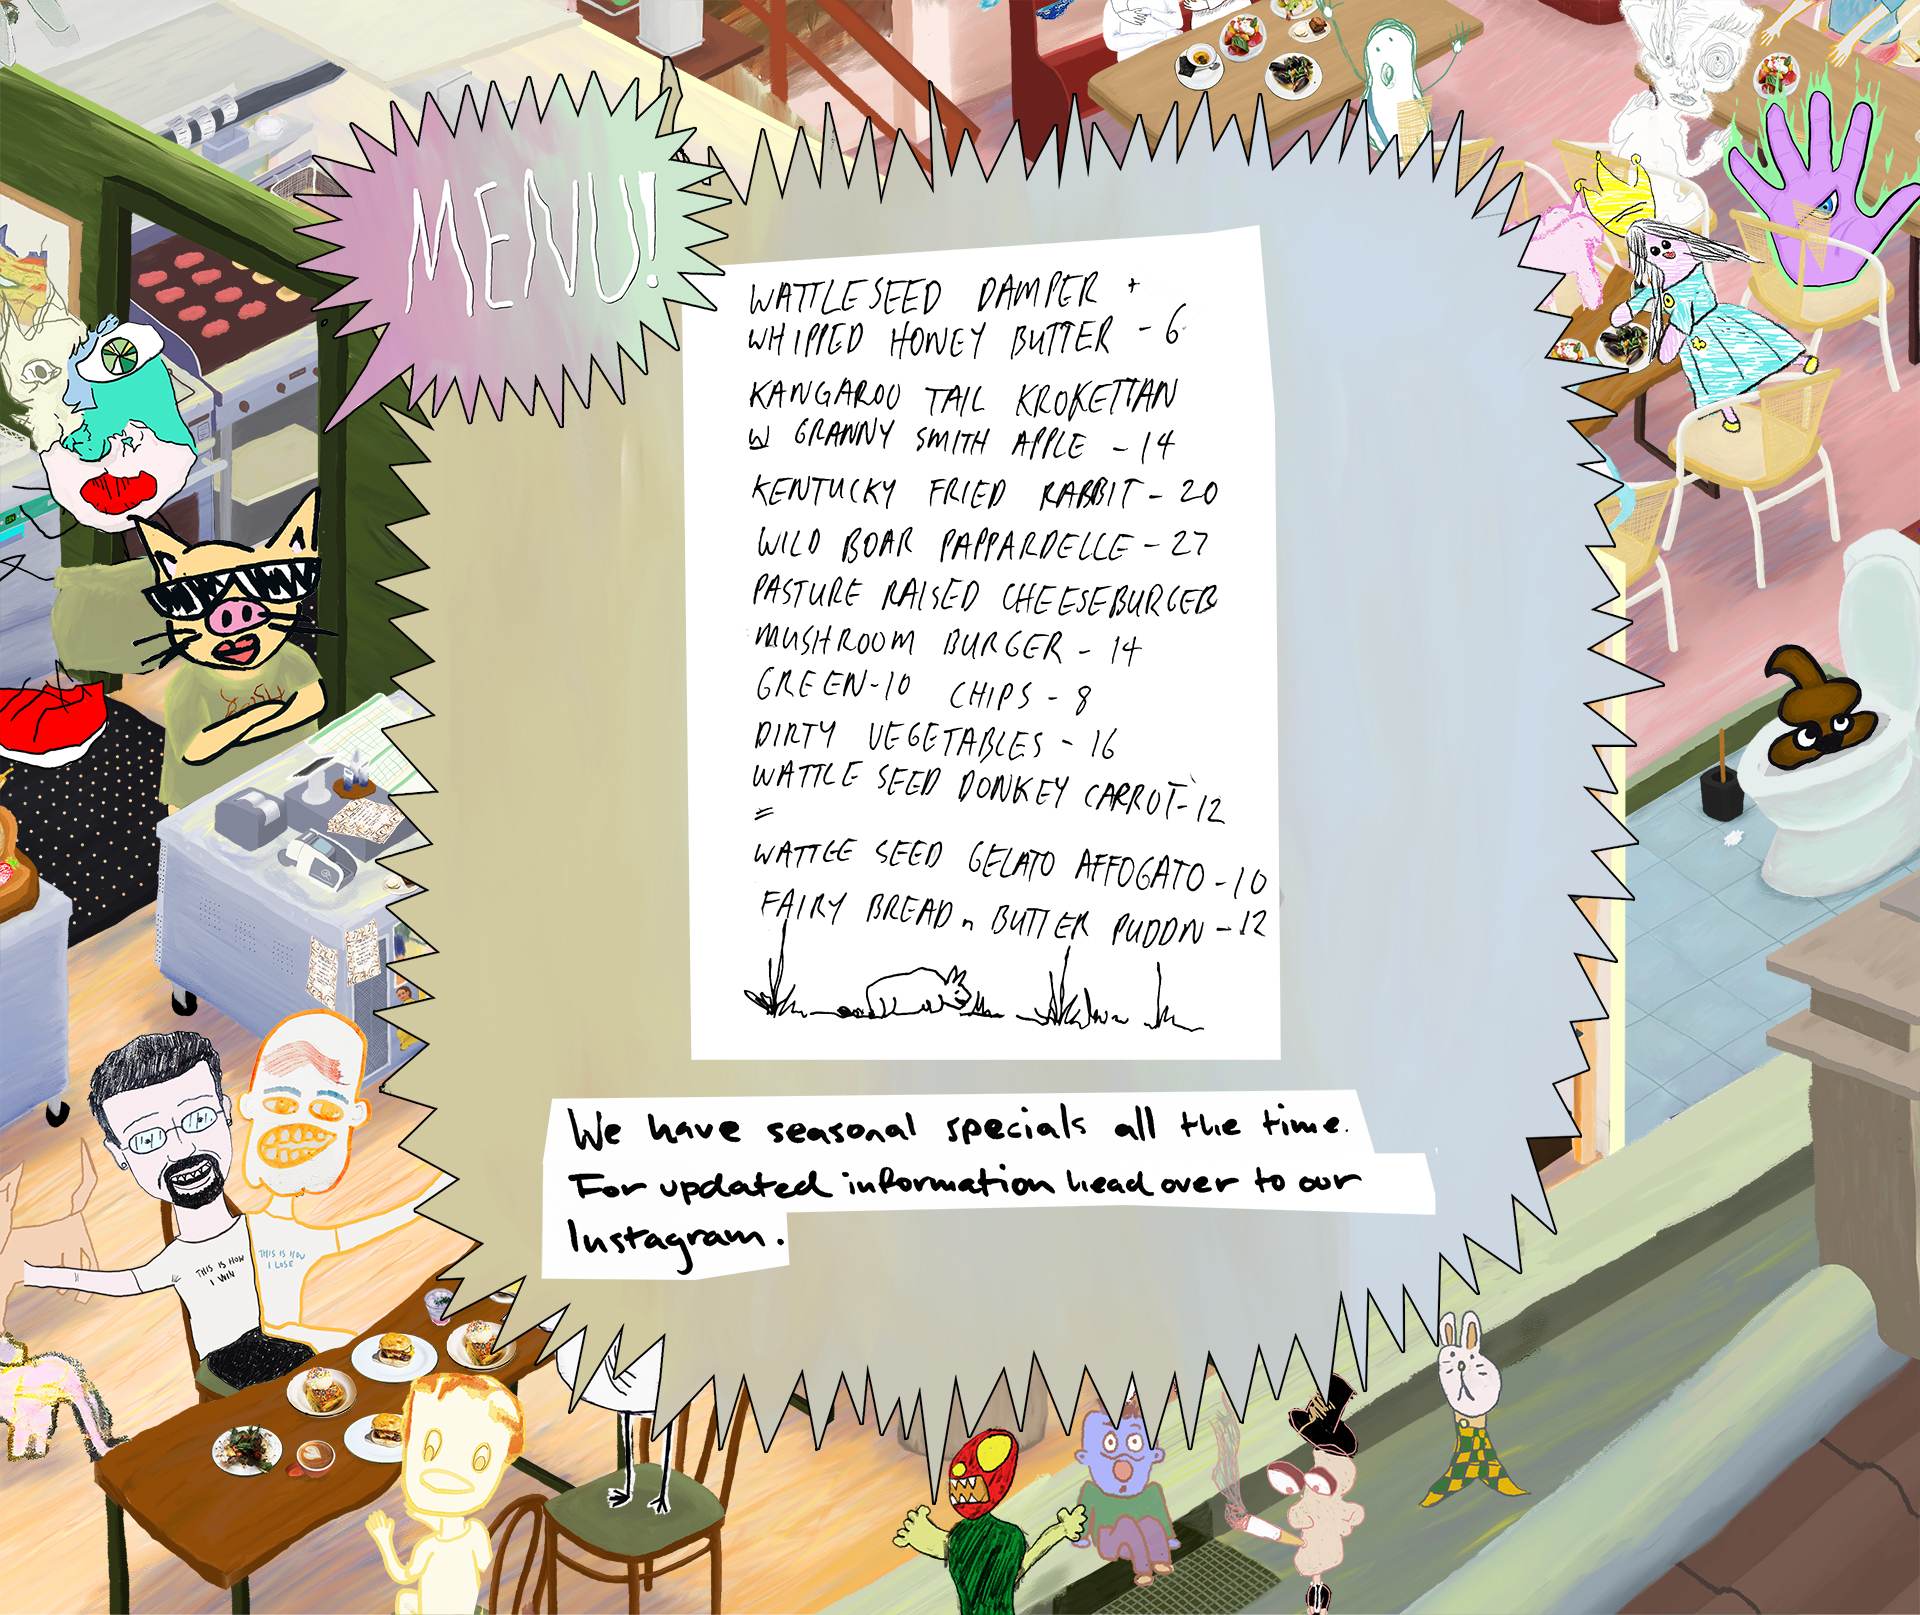 MENU!
WATTLESEED DAMPER +
WHIPPED HONEY BUTTER - 6
KANGAROO TAIL KROKETTAN
W GRANNY SMITH APPLE - 14
KENTUCKY FRIED RABBIT - 20
WILD BOAR PAPPARDELLE - 27
PASTURE RAISED CHEESEBURGER
MUSHROOM BURGER - 14
GREEN - 10 CHIPS - 8
DIRTY VEGETABLES - 16
WATTLE SEED DONKEY CARROT - 12
=
WATTLE SEED GELATO AFFOGATO - 10
FAIRY BREAD n BUTTER PUDDN - 12
We have seasonal specials all the time.
For updated information head over to our
Instagram.
THIS IS HOW
I WIN
THIS IS HOW
I LOSE